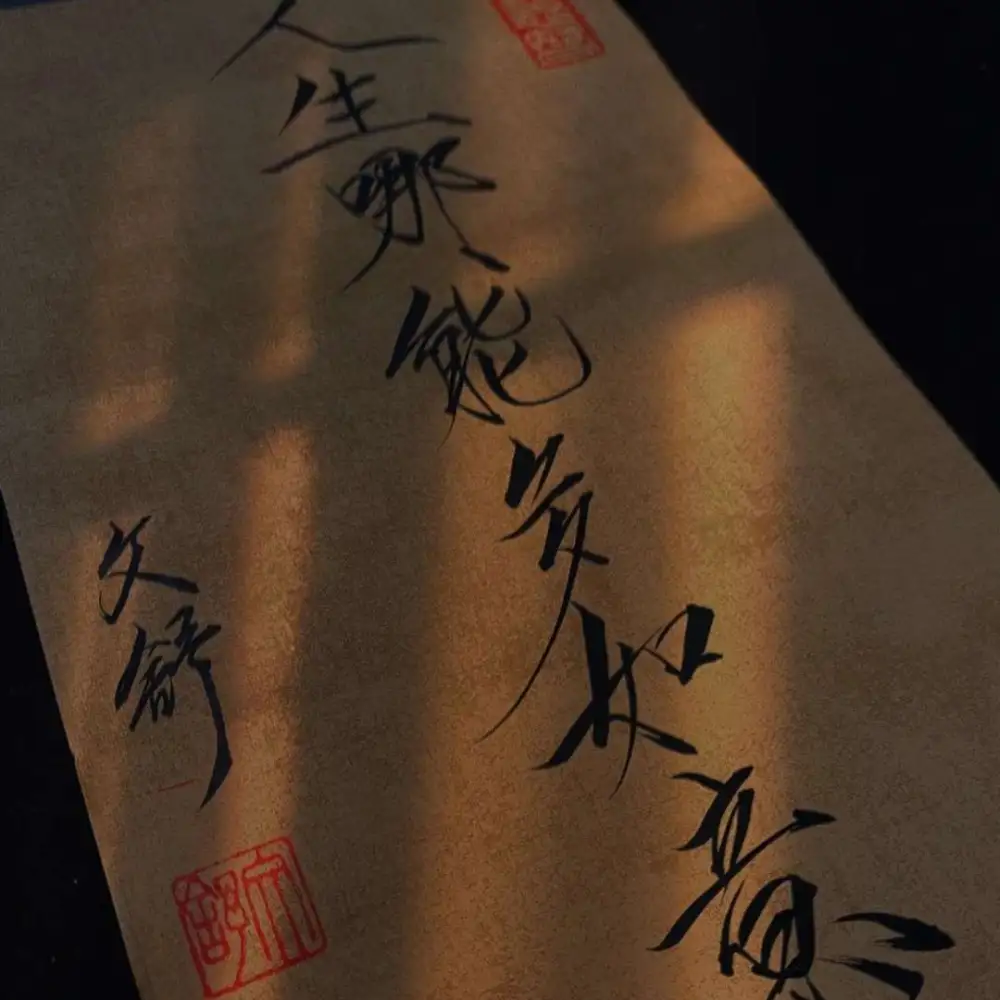 人生哪能多如意
文舒